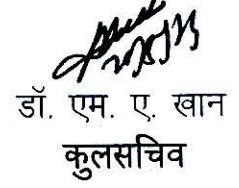 डॉ. एम. ए. खान
कुलसचिव